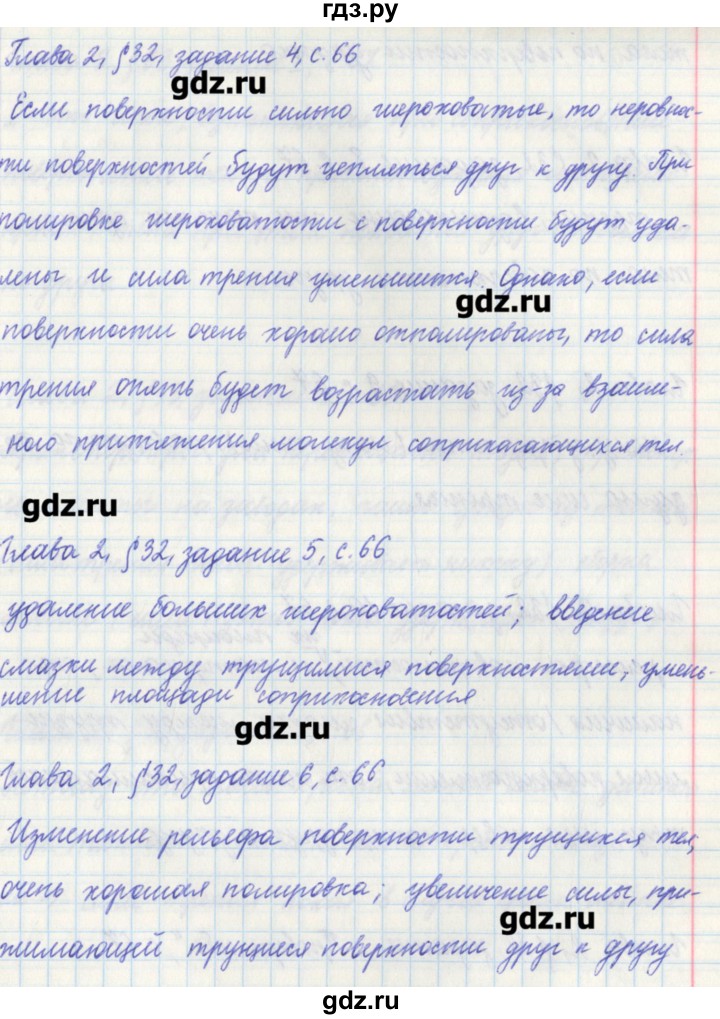 гдз.ру
Глава 2, §32, задание 4, с. 66
gdz.ru
Если поверхности сильно шероховатые, то неровнос-
ти поверхностей будут цепляться друг к другу. При
полировке шероховатости с поверхности будут уда-
лены и сила трения уменьшится. Однако, если
gdz.ru
поверхности очень хорошо отполированы, то сила
трения опять будет возрастать из-за взаим-
ного притяжения молекул соприкасающихся тел.
gdz.ru
Глава 2, §32, задание 5, с. 66
удаление больших шероховатостей; введение
смазки между трущимися поверхностями; умень-
шение площади соприкосновения
gdz.ru
Глава 2, §32, задание 6, с. 66
Изменение рельефа поверхности трущихся тел,
очень хорошая полировка; увеличение силы, при-
gdz.ru
жимающей трущиеся поверхности друг к другу
gdz.ru